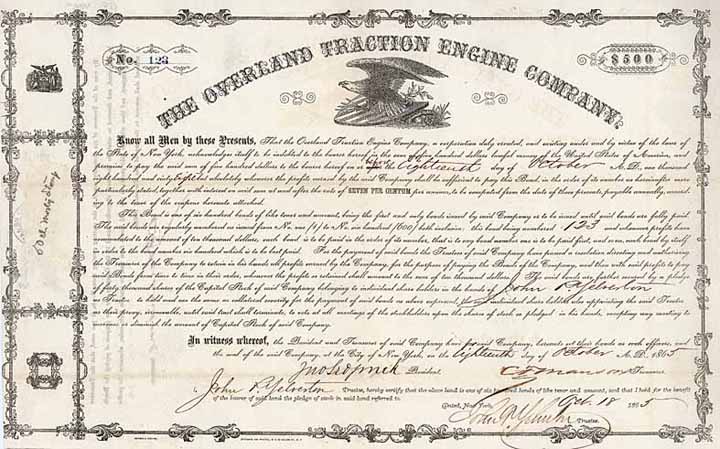 No. 123
$500
THE OVERLAND TRACTION ENGINE COMPANY.
Know all Men by these Presents, That the Overland Traction Engine Company, a corporation duly created, and existing under and by virtue of the laws of the
State of New York, acknowledges itself to be indebted to the bearer hereof in the sum of five hundred dollars lawful money of the United States of America, and
promises to pay the said sum of five hundred dollars to the bearer hereof on or the eighteenth day of October A. D., one thousand
eight hundred and sixty absolutely, whenever the profits earned by the said Company shall be sufficient to pay this Bond in the order of its number as hereinafter
particularly stated, together with interest on said sum at and after the rate of SEVEN PER CENTUM per annum, to be computed from the date of these presents, payable annually, according
to the tenor of the coupons hereunto attached.
This Bond is one of six hundred bonds of like tenor and amount, being the first and only bonds issued by said Company or to be issued until said bonds are fully paid.
The said bonds are regularly numbered as issued from No. one (1) to No. six hundred (600) both inclusive; this bond being numbered 123 and whenever profits have
accumulated to the amount of ten thousand dollars, each bond is to be paid in the order of its number, that is to say bond number one is to be paid first, and so on, each bond by itself
in order to the bond number six hundred which is to be last paid. For the payment of said bonds the Trustees of said Company have passed a resolution directing and authorizing
the Treasurer of the Company to retain in his hands all profits earned by the Company, for the purpose of paying the Bonds of the Company, and that with said profits to pay
said Bonds from time to time in their order, whenever the profits so retained shall amount to the sum of ten thousand dollars. The said bonds are further secured by a pledge
of forty thousand shares of the Capital Stock of said Company belonging to individual share holders in the hands of John P. Yelverton
as Trustee to hold and use the same as collateral security for the payment of said bonds as above expressed, said individual share holders also appointing the said Trustee
as their proxy, irrevocable, until said trust shall terminate, to vote at all meetings of the stockholders upon the shares of stock so pledged in his hands, except upon any meeting to
increase or diminish the amount of Capital Stock of said Company.
In witness whereof, the President and Treasurer of said Company have for said Company, hereunto set their hands as such officers, and
the seal of said Company, at the City of New York, on the eighteenth day of October A. D. 1865
President
Treasurer
I, John P. Yelverton Trustee, hereby certify that the above bond is one of six hundred bonds of like tenor and amount, and that I hold for the benefit
of the bearer of said bond the pledge of stock in said bond referred to.
Dated, New York, Oct. 18 1865
John P. Yelverton Trustee.